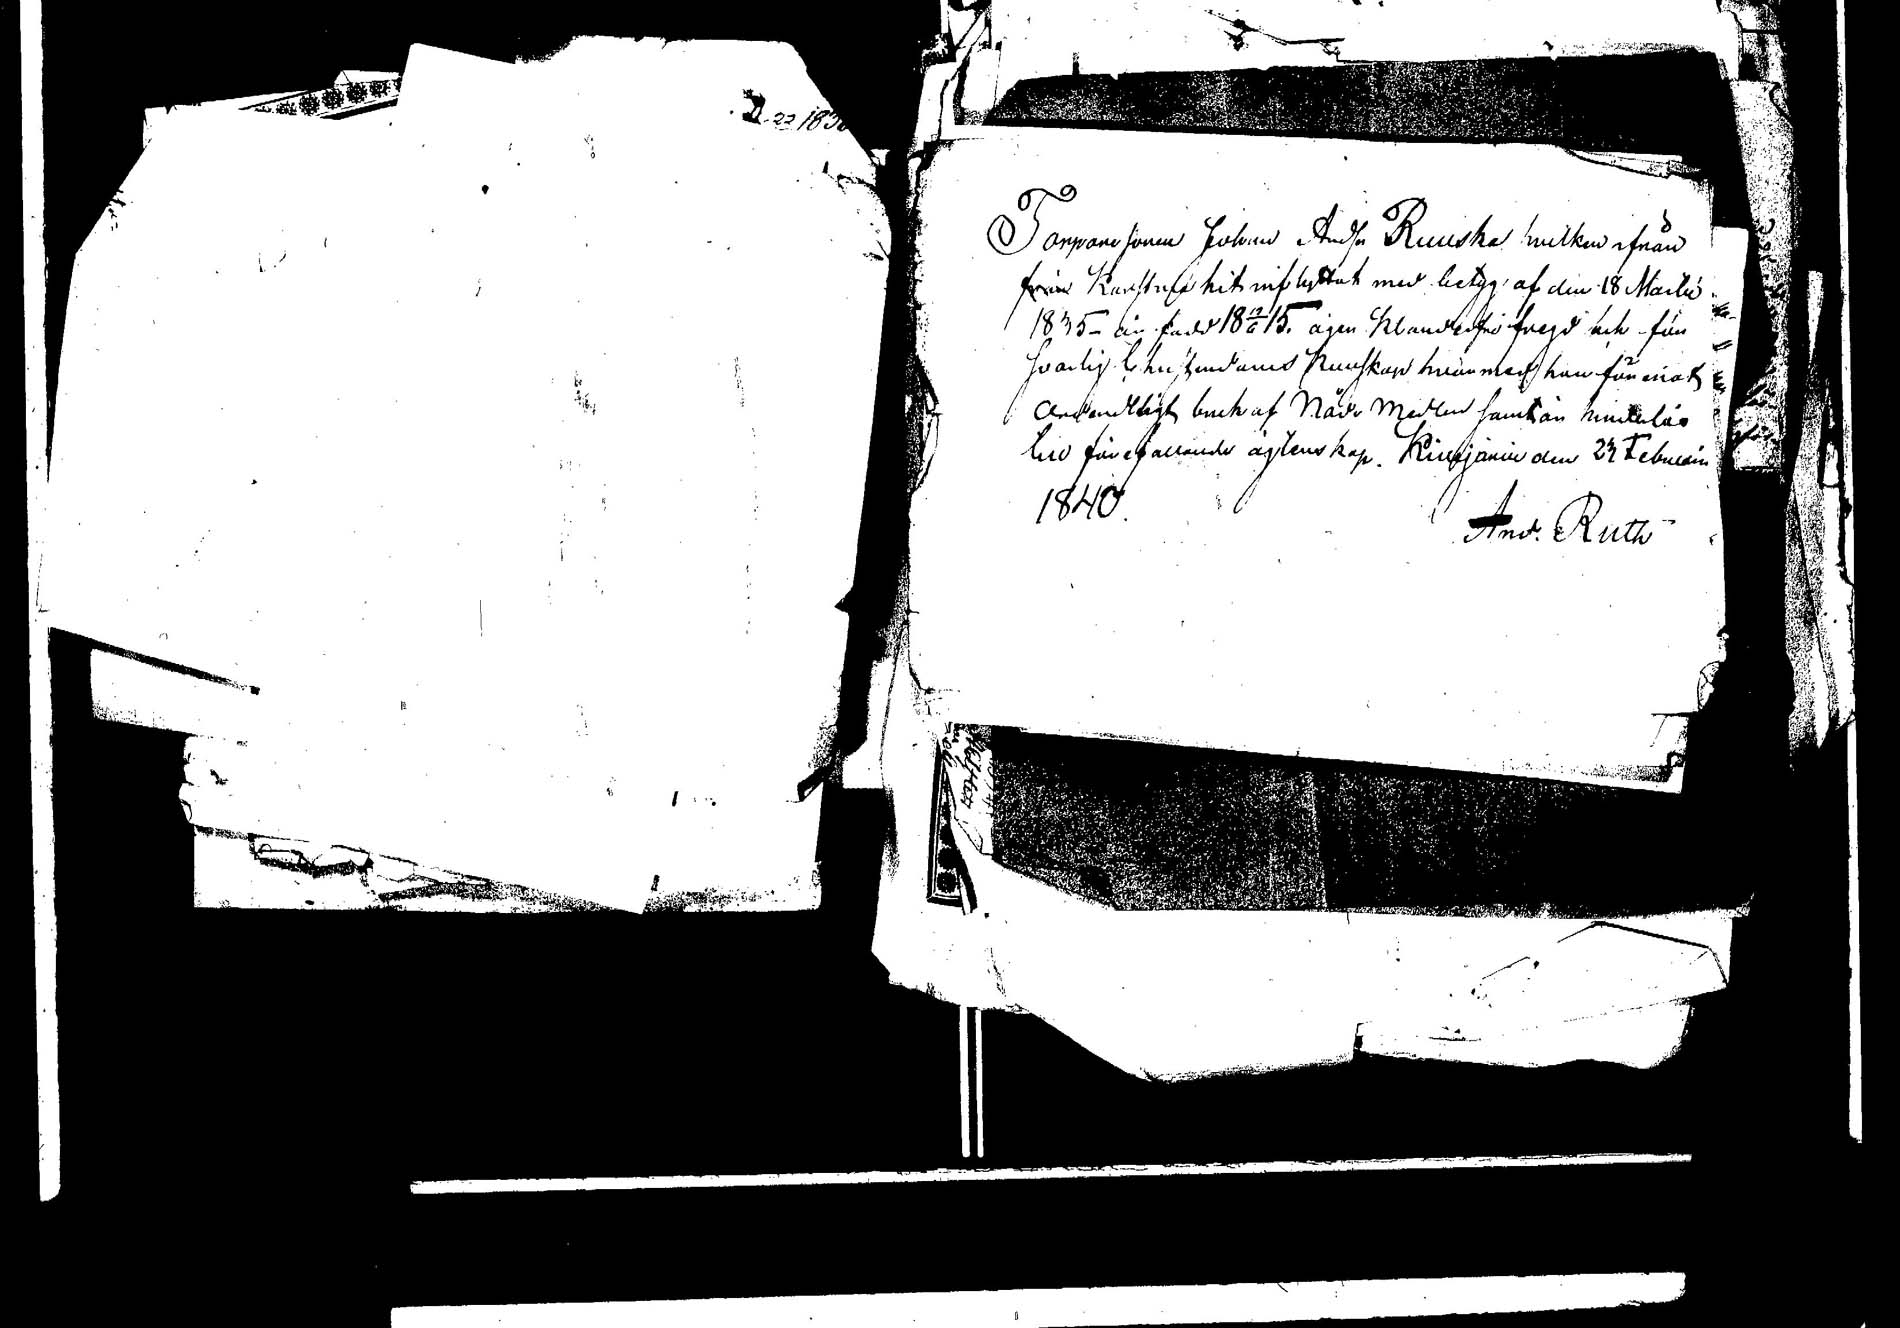 22 183
Torpare sonen Johan Andsn Ruuska hvilken ifrån
från Karstula hit inflyttat med betyg af den 18 Martii
1835 är född 18 12/6 15. äger Klanderfri fregd och för
svarlig Christendoms Kunskap hvarmed han förenat
anständigt bruk af Nåde Medlen samt är hinderlös
till förefallande ägtenskap. Kivijärvi den 23 Februarii
1840.
And. Ruth